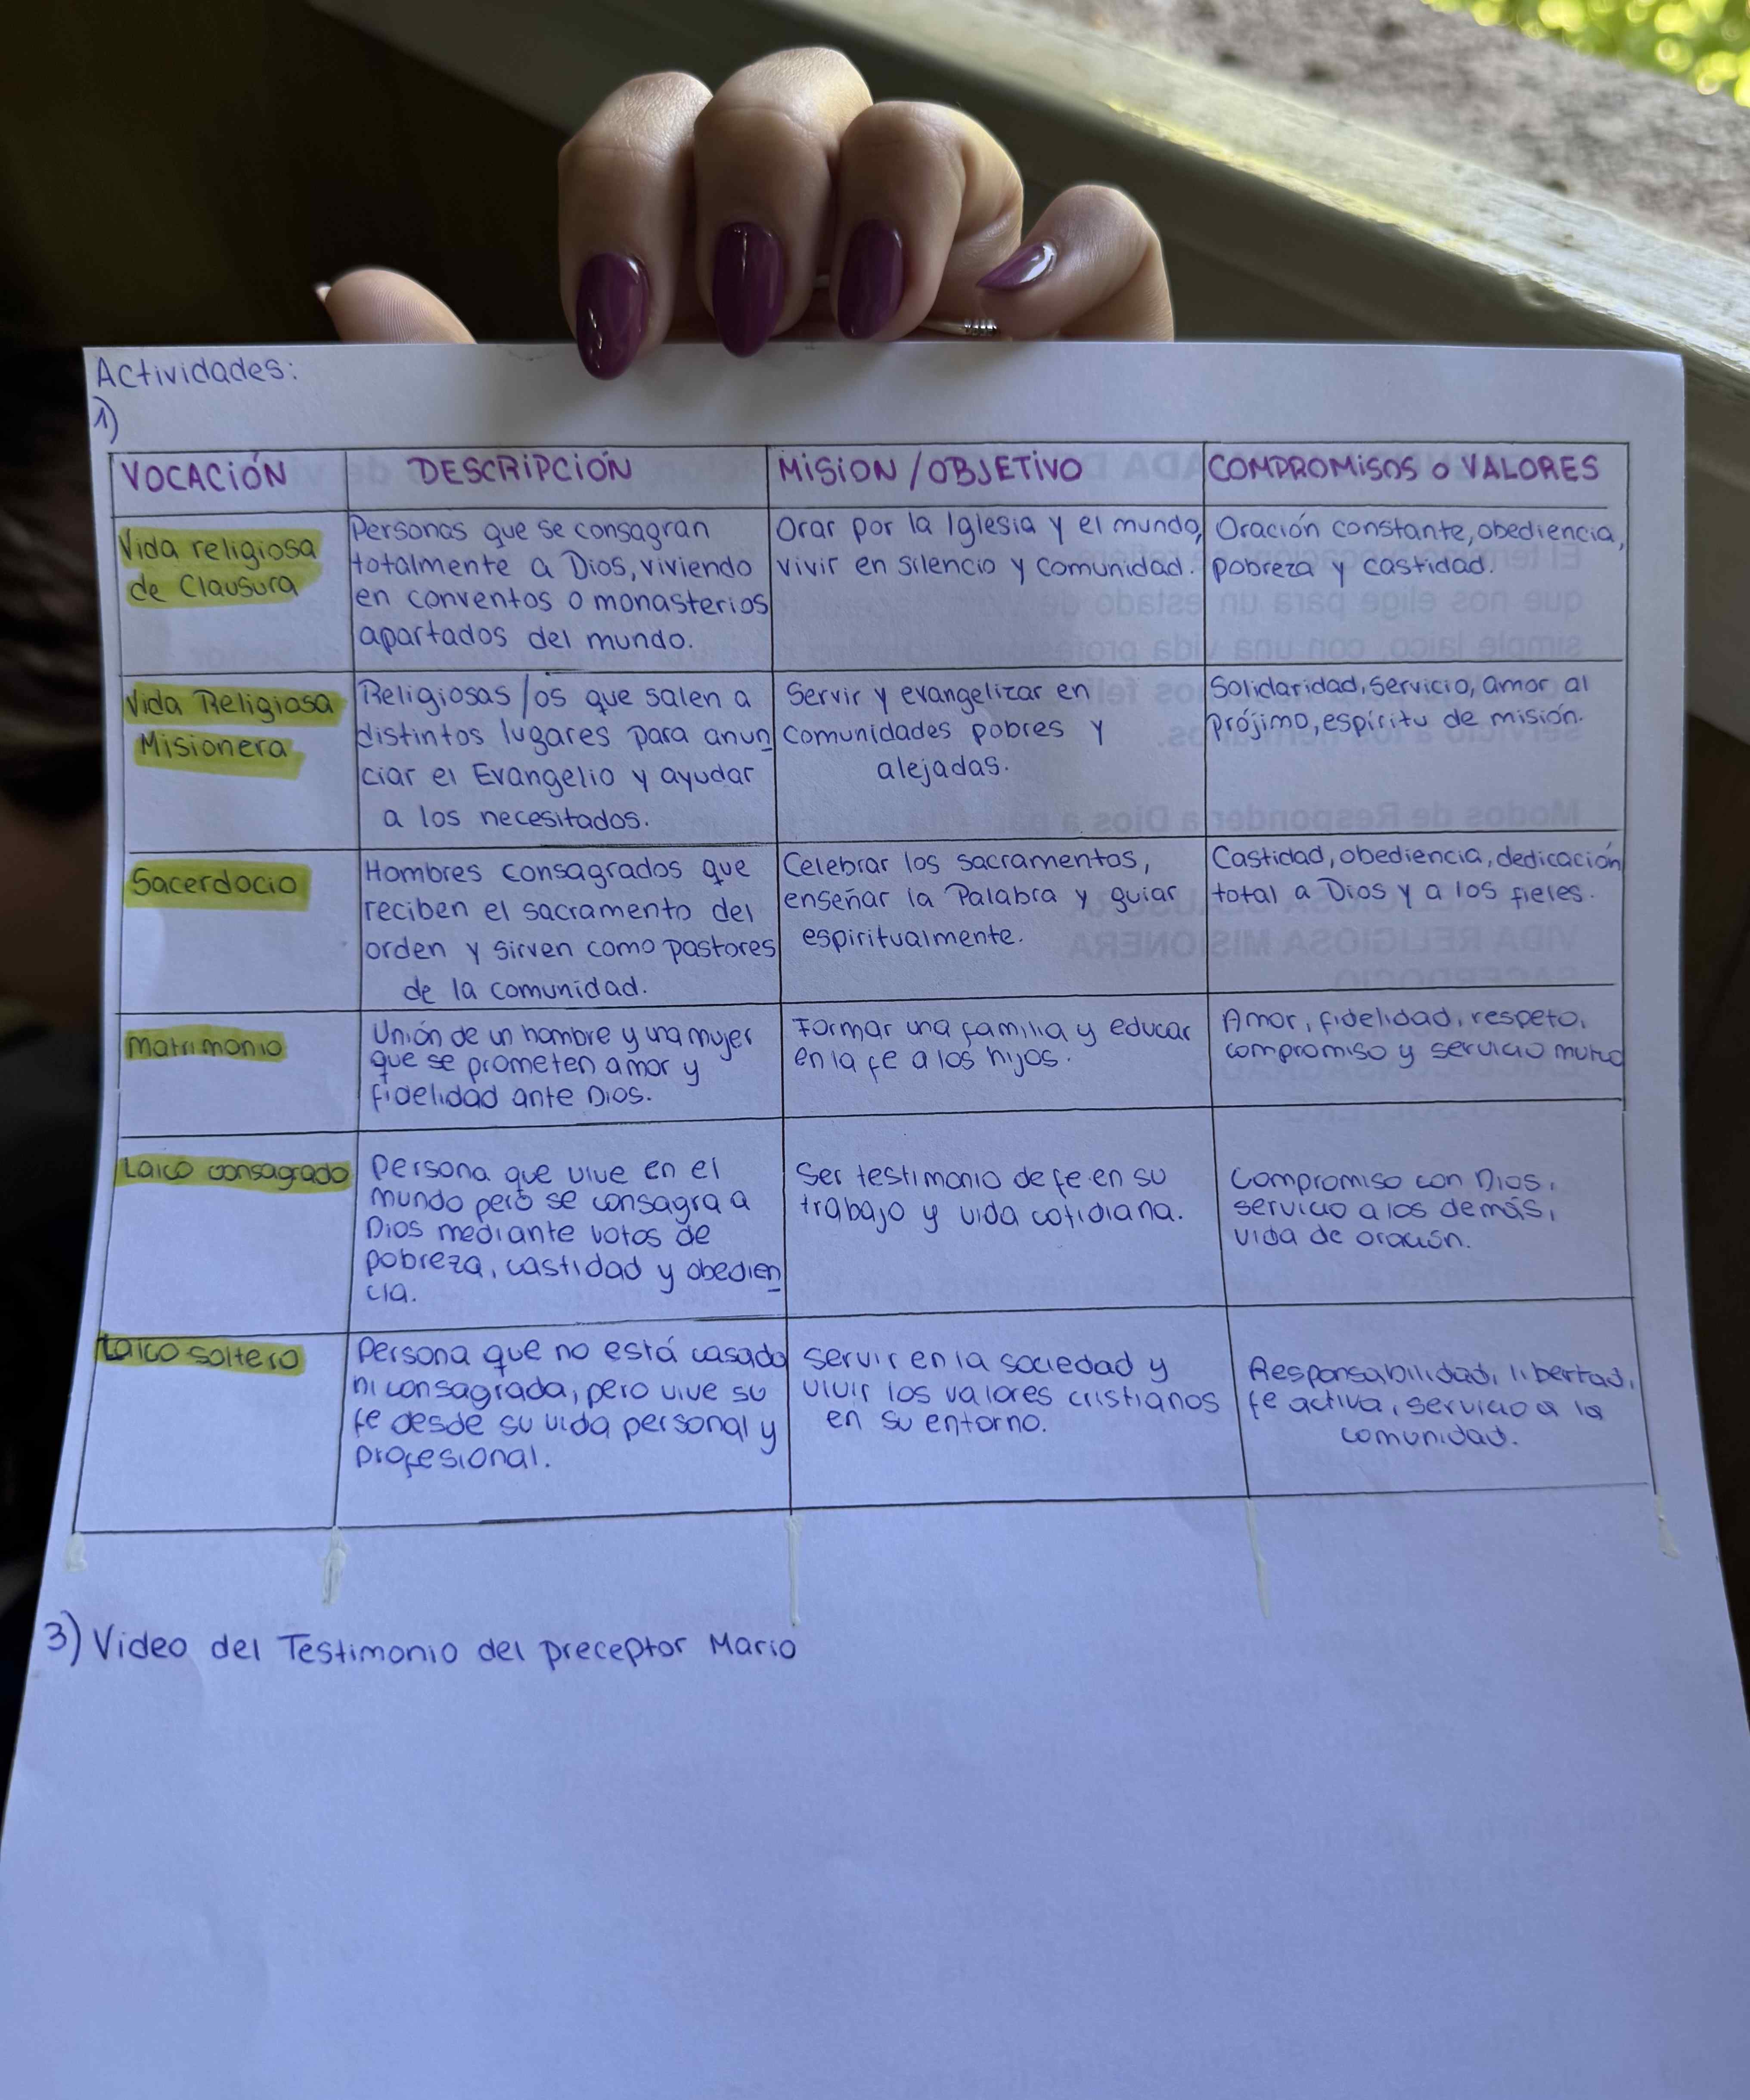 Actividades:
1)
VOCACIÓN
DESCRIPCIÓN
MISION / OBJETIVO
COMPROMISOS o VALORES
Vida religiosa
de Clausura
Personas que se consagran
totalmente a Dios, viviendo
en conventos o monasterios
apartados del mundo.
Orar por la Iglesia y el mundo,
vivir en silencio y comunidad.
Oración constante, obediencia,
pobreza y castidad.
Vida Religiosa
Misionera
Religiosas/os que salen a
distintos lugares para anun
ciar el Evangelio y ayudar
a los necesitados.
Servir y evangelizar en
comunidades pobres y
alejadas.
Solidaridad, servicio, amor al
prójimo, espíritu de misión.
Sacerdocio
Hombres consagrados que
reciben el sacramento del
orden y sirven como pastores
de la comunidad.
Celebrar los sacramentos,
enseñar la Palabra y guiar
espiritualmente.
Castidad, obediencia, dedicación
total a Dios y a los fieles.
Matrimonio
Unión de un hombre y una mujer
que se prometen amor y
fidelidad ante Dios.
Formar una familia y educar
en la fe a los hijos.
Amor, fidelidad, respeto,
compromiso y servicio mutuo
Laico consagrado
Persona que vive en el
mundo pero se consagra a
Dios mediante votos de
pobreza, castidad y obedien
cia.
Ser testimonio de fe en su
trabajo y vida cotidiana.
Compromiso con Dios,
servicio a los demás,
vida de oración.
Laico soltero
Persona que no está casada
ni consagrada, pero vive su
fe desde su vida personal y
profesional.
Servir en la sociedad y
vivir los valores cristianos
en su entorno.
Responsabilidad, libertad,
fe activa, servicio a la
comunidad.
3) Video del Testimonio del preceptor Mario